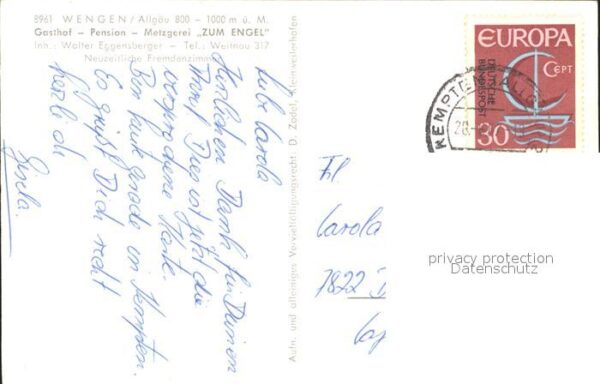 8961 WENGEN/Allgäu 800 - 1000 m ü. M.
Gasthof - Pension - Metzgerei „ZUM ENGEL"
Inh.: Walter Eggensberger - Tel.: Weitnau 317
Neuzeitliche Fremdenzimmer
Liebe Carola
Herzlichen Dank für Deinen
Dies ist jetzt die
versprochene Karte.
Bin heute gerade in Kempten.
Es grüßt Dich recht
herzlich
Gisela.
Aufn. und alleiniges Vervielfältigungsrecht: D. Zodel, Kleinweilerhofen
EUROPA
CEPT
DEUTSCHE
BUNDESPOST
30
KEMPTEN
Frl.
Carola
7822
privacy protection
Datenschutz